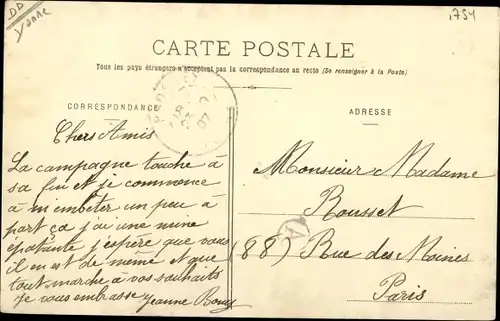 DD
Yonne
1754
CARTE POSTALE
Tous les pays étrangers n'acceptent pas la correspondance au recto (Se renseigner à la Poste)
CORRESPONDANCE
ADRESSE
Chers Amis
La campagne touche à
sa fin et je commence
à m'embêter un peu à
part ça j'ai une mine
épatante j'espère que vous
il en est de même et que
tout marche à vos souhaits
je vous embrasse Jeanne
Monsieur Madame
Rousset
(88) Rue des Moines
Paris
07